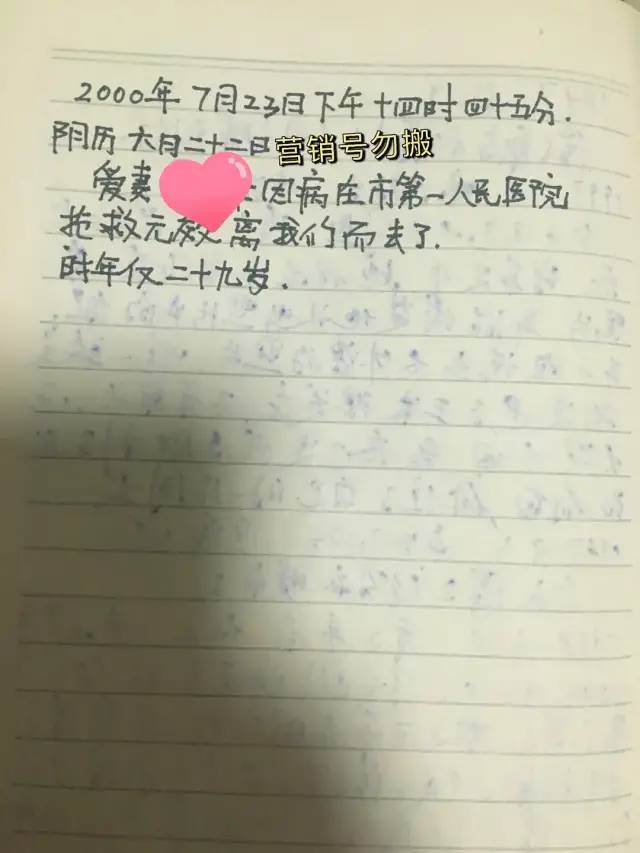 2000年7月23日下午十四时四十五分.
阴历六月二十二日
营销号勿搬
爱妻 因病在市第一人民医院
抢救无效离我们而去了.
时年仅二十九岁.